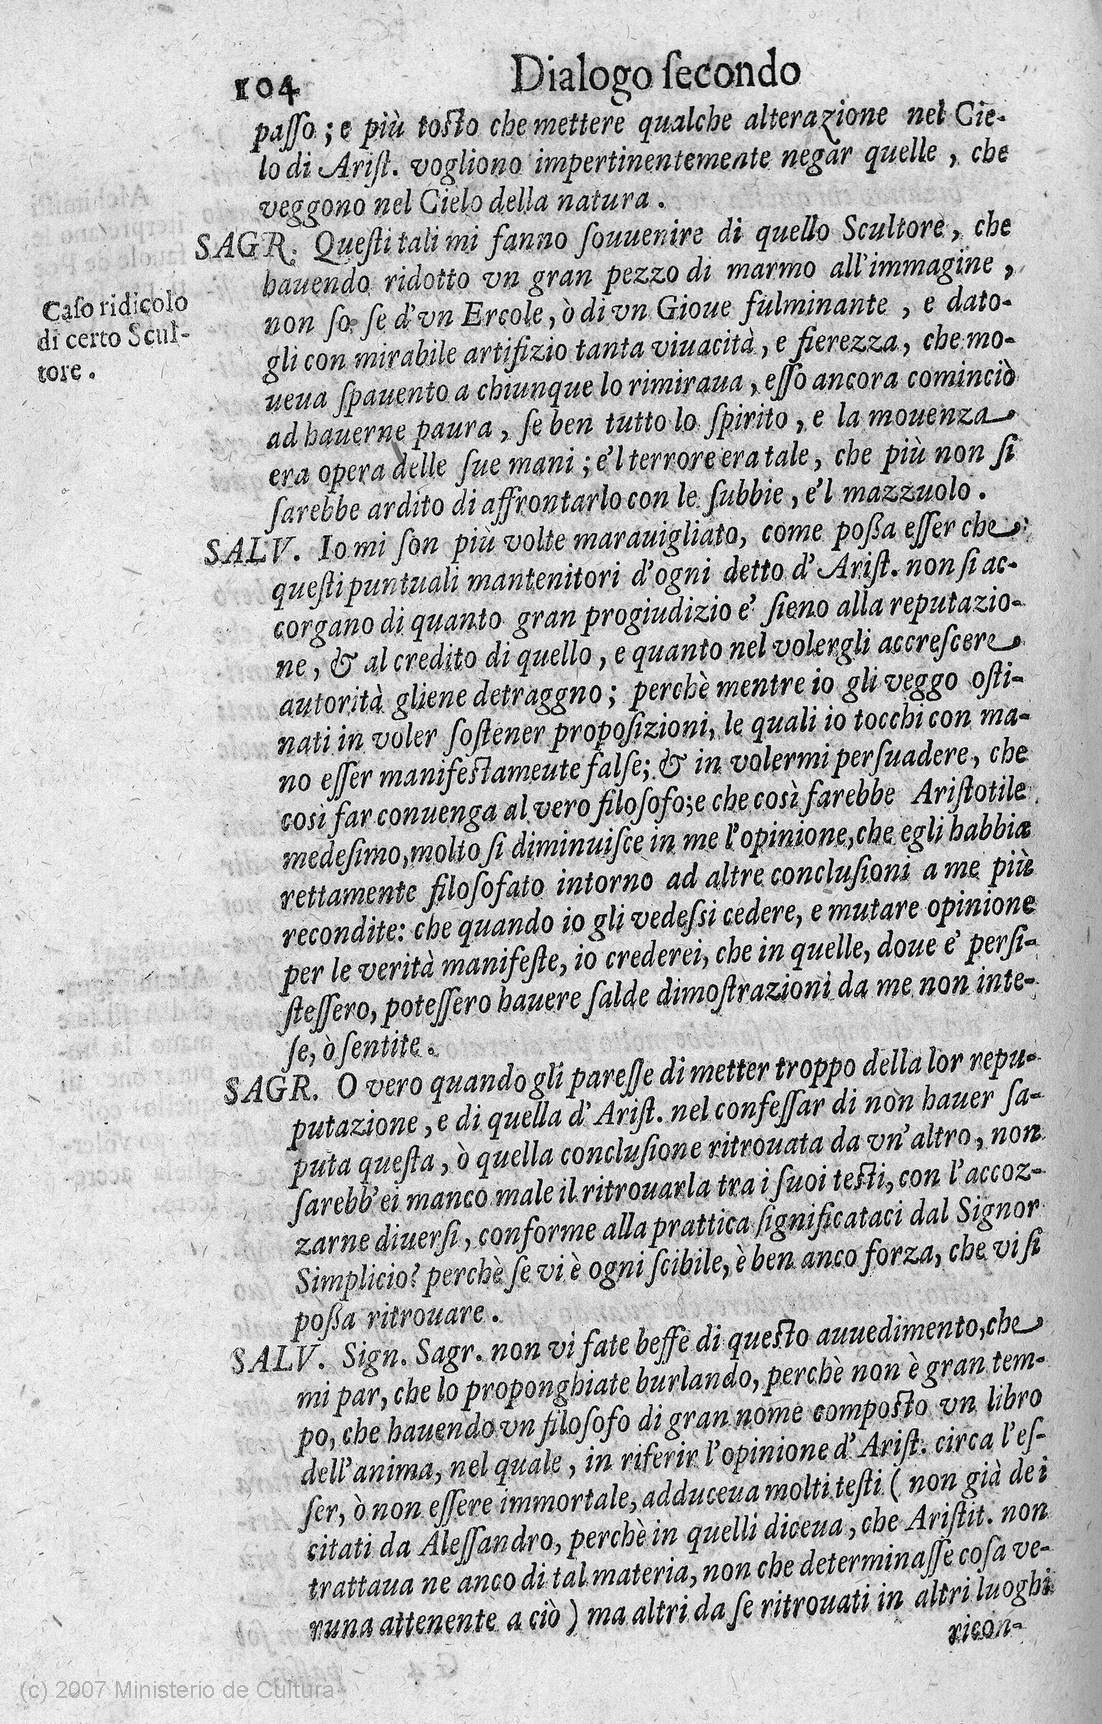 104 Dialogo ſecondo
paſſo; e più toſto che mettere qualche alterazione nel Cie-
lo di Ariſt. vogliono impertinentemente negar quelle, che
veggono nel Cielo della natura.
SAGR. Queſti tali mi fanno ſouuenire di quello Scultore, che
hauendo ridotto vn gran pezzo di marmo all'immagine,
non ſo ſe d'vn Ercole, ò di vn Gioue fulminante, e dato-
gli con mirabile artifizio tanta viuacità, e fierezza, che mo-
ueua ſpauento a chiunque lo rimiraua, eſſo ancora cominciò
ad hauerne paura, ſe ben tutto lo ſpirito, e la mouenza
era opera delle ſue mani; e'l terrore era tale, che più non ſi
ſarebbe ardito di affrontarlo con le ſubbie, e'l mazzuolo.
Caſo ridicolo
di certo Scul-
tore.
SALV. Io mi ſon più volte marauigliato, come poßa eſſer che
queſti puntuali mantenitori d'ogni detto d'Ariſt. non ſi ac-
corgano di quanto gran progiudizio e' ſieno alla reputazio-
ne, & al credito di quello, e quanto nel volergli accreſcere
autorità gliene detraggno; perchè mentre io gli veggo oſti-
nati in voler ſoſtener propoſizioni, le quali io tocchi con ma-
no eſſer manifeſtameute falſe; & in volermi perſuadere, che
così far conuenga al vero filoſofo; e che così farebbe Ariſtotile
medeſimo, molto ſi diminuiſce in me l'opinione, che egli habbia
rettamente filoſofato intorno ad altre concluſioni a me più
recondite: che quando io gli vedeſſi cedere, e mutare opinione
per le verità manifeſte, io crederei, che in quelle, doue e' perſi-
ſteſſero, poteſſero hauere ſalde dimoſtrazioni da me non inte-
ſe, ò ſentite.
SAGR. O vero quando gli pareſſe di metter troppo della lor repu-
putazione, e di quella d'Ariſt. nel confeſſar di non hauer ſa-
puta queſta, ò quella concluſione ritrouata da vn'altro, non
ſarebb'ei manco male il ritrouarla tra i ſuoi teſti, con l'accoz-
zarne diuerſi, conforme alla prattica ſignificataci dal Signor
Simplicio? perchè ſe vi è ogni ſcibile, è ben anco forza, che vi ſi
poßa ritrouare.
SALV. Sign. Sagr. non vi fate beffe di queſto auuedimento, che
mi par, che lo proponghiate burlando, perchè non è gran tem-
po, che hauendo vn filoſofo di gran nome compoſto vn libro
dell'anima, nel quale, in riferir l'opinione d'Ariſt. circa l'eſ-
ſer, ò non eſſere immortale, adduceua molti teſti (non già de i
citati da Aleſſandro, perchè in quelli diceua, che Ariſtit. non
trattaua ne anco di tal materia, non che determinaſſe coſa ve-
runa attenente a ciò) ma altri da ſe ritrouati in altri luoghi
ricon-
(c) 2007 Ministerio de Cultura